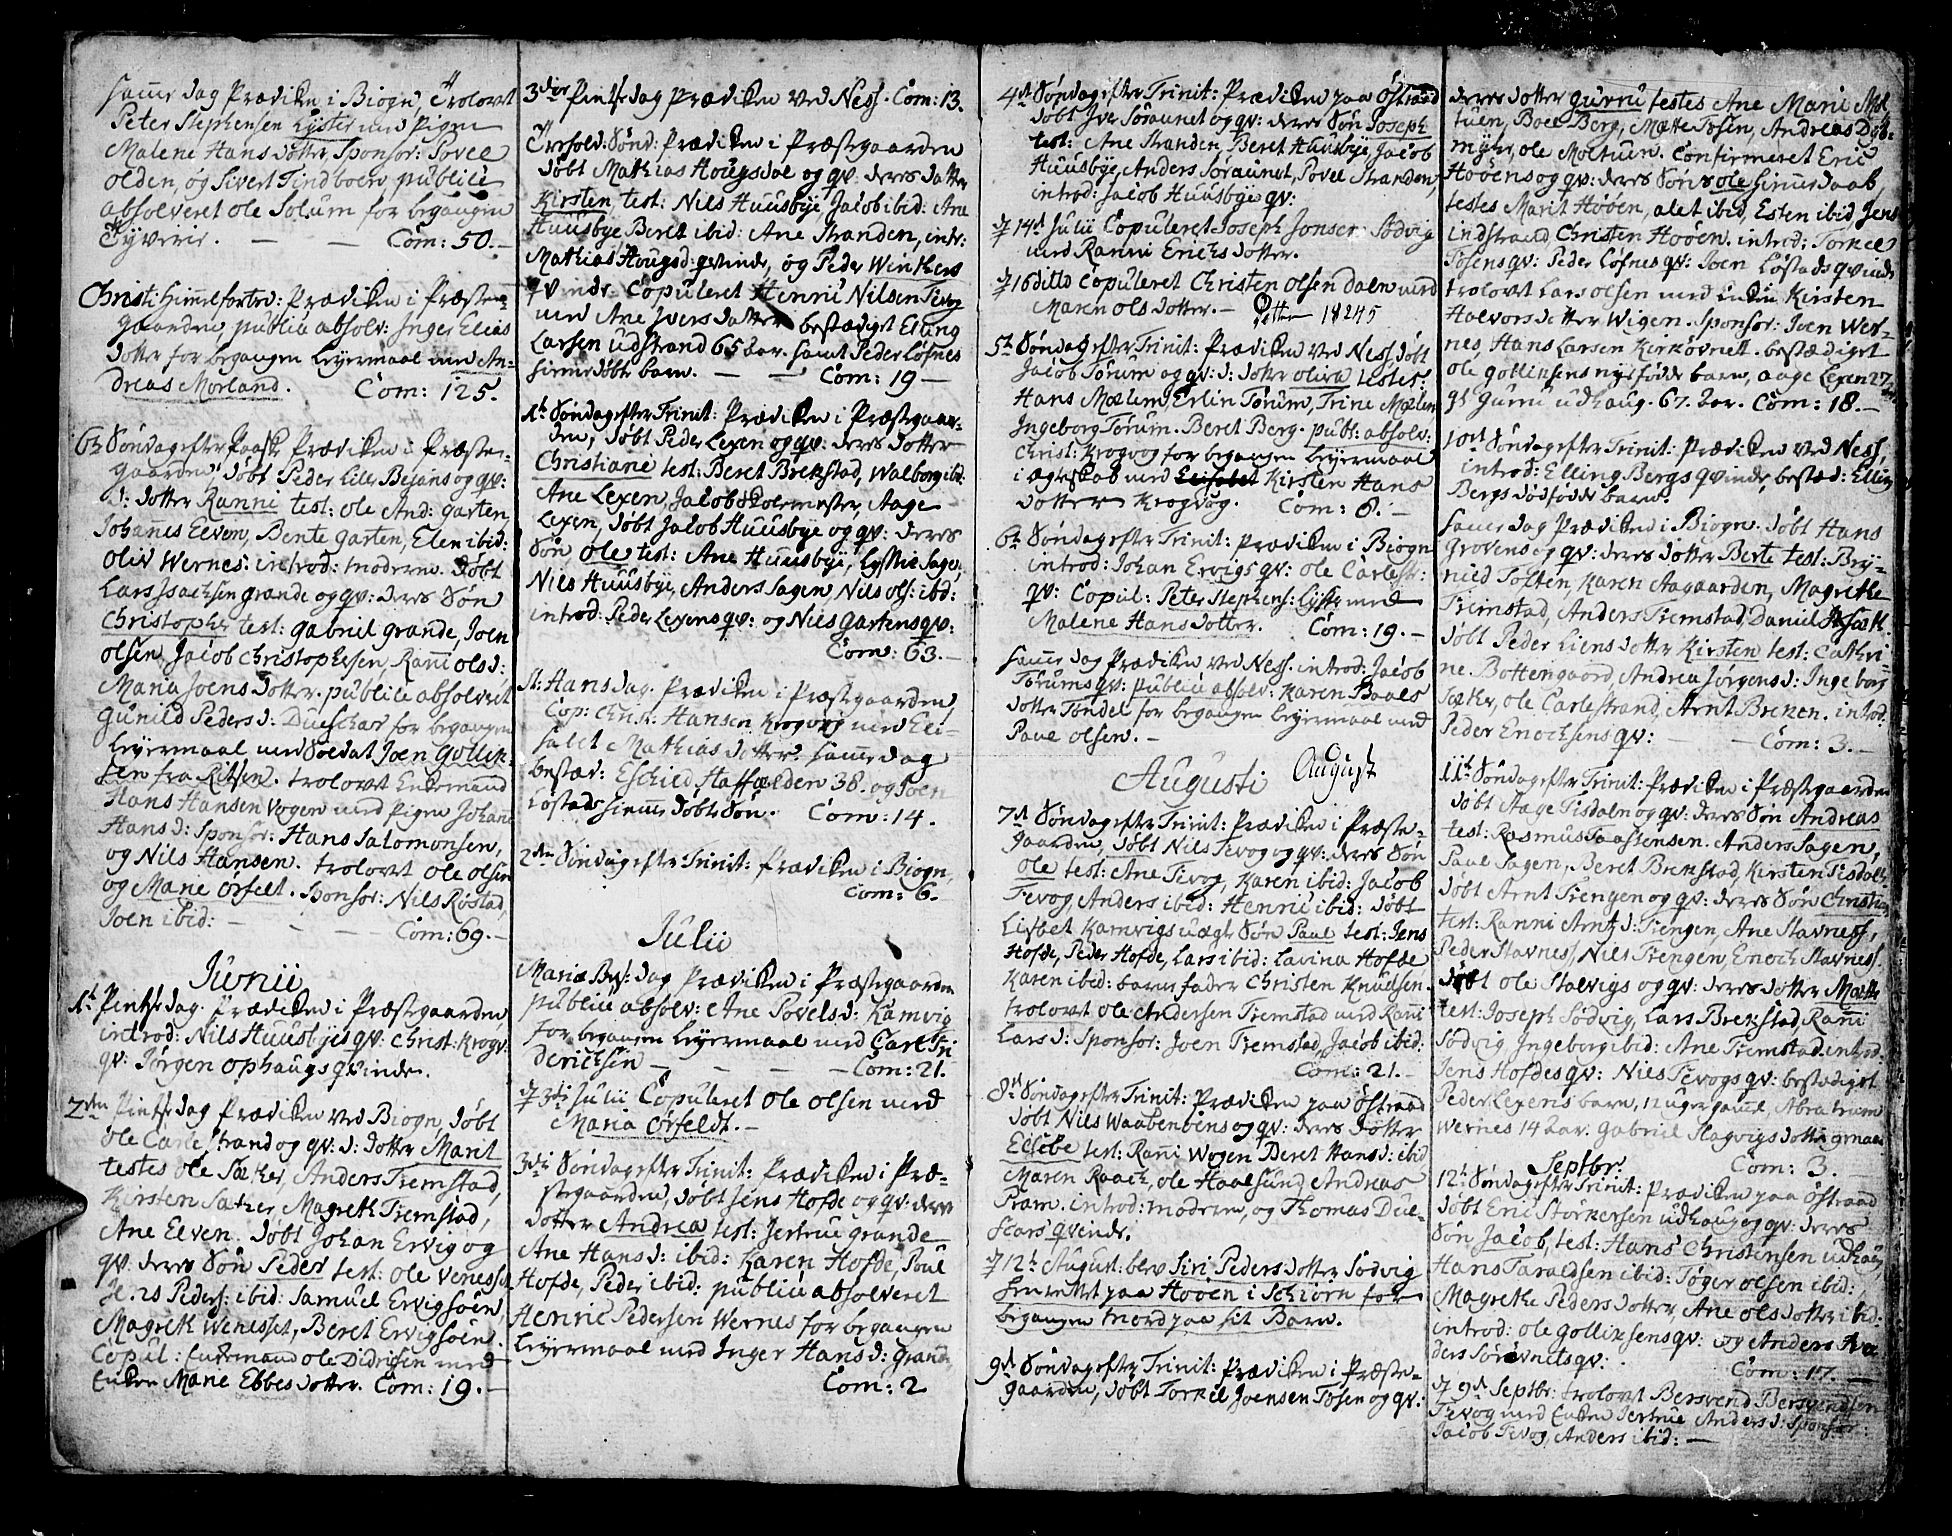 samme dag Prædiken i Biogn, Trolovet
Peter Stephensen Lyster med Pigen
Malene Hans dotter, Sponsor: Povel
olden, og Sivert Tindboen, publice
absolveret ole Solum for begangen
Tyverie. — — Com: 50. —
Christi Himmelfartsd: Prædiken i Præste-
gaarden, publice absolv: Inger Elias
dotter for begangen Leyermaal med An-
dreas Morland. Com: 125.
6te Søndag efter Paaske Prædiken i Præste-
gaarden, døbt Peder Lilleb og qv:
d: dotter Ranni test: ole And: garten,
Johanes Elven, Bente garten, Elen ibid:
oliv Wernes: introd: moderen. Døbt
Lars Isachsen grande og qv: deres Søn
Christopher test: gabriel grande, Joen
olsen Jacob Christophersen, Ranni ols d:
Maria Joens dotter. publice absolveret
Gunild Peders d: Dueskar for begangen
Leyermaal med Soldat Joen Gollik-
sen fra Ritsen. trolovet Enkemand
Hans Hansen Vogen med Pigen Johana
Hans d: Sponsor: Hans Salomonsen,
og Nils Hansen. trolovet ole olsen
og Mane Ørfelt. Sponsor: Nils Røstad,
Joen ibid: — — — Com: 69. —
Junii
1te Pintsedag Prædiken i Præstgaarden,
introd: Nils Huusbyes qv: Christ: Krogv:
qv: Jørgen Ophaugs qvinde.
2den Pintsedag Prædiken ved Biogn, døbt
ole Carlestrand og qv: d: dotter Marit
testes ole Sæther, Anders Tremstad,
Kirsten Sæther, Magreth Tremstad,
Ane Elven. døbt Johan Ervig og
qv: deres Søn Peder test: ole Venesset
Jens Peders: ibid: Samuel Ervigsøen,
Magreth Wenesset, Beret Ervigsøen.
Copul: Enkemand ole Didrigsen med
Enken Mane Ebbes dotter. Com: 19. —
3die Pintsedag Prædiken ved Ness. Com: 13.
Trefold: Sønd: Prædiken i Præstgaarden
døbt Mathias Hougsdal og qv: deres datter
Kirsten test: Nils Huusbye, Jacob ibid: Ane
Huusbye Beret ibid: Ane Stranden, intr:
Mathias Hougsd: qvinde, og Peder Winthers
qvinde. Copuleret Henric Nilsen Tevog
med Ane Ivers datter bestædiget Erling
Larsen udstrand 65 aar. samt Peder Løfnes
hiemmedøbte barn. — — Com: 19 —
1te Søndag efter Trinit: Prædiken i Præstgaar-
den, døbt Peder Lexen og qv: deres dotter
Christiane test: Beret Brekstad, Walborg ibid:
Ane Lexen, Jacob skolemester, Aage
Lexen, døbt Jacob Huusbye og qv: deres
Søn ole test: Ane Huusbye, Sagen,
Nils Huusbye, Anders Sagen Nils ols: ibid:
introd: Peder Lexens qv: og Niels gartens qv:
Com: 63. —
St: Hansdag. Prædiken i Præstgaarden,
Cop: Christ: Hansen Krogvog med Eli-
sabet Mathias dotter. samme dag
bestæd: Eschild Haffælden 38. og Joen
Løstads hiemmedøbte Søn. Com: 14.
2den Søndag efter Trinit: Prædiken i Biogn,
Com: 6.
Julii
Mariæ Bes: dag Prædiken i Præstgaarden
publice absolv: Ane Povels d: Kamvig
for begangen Leyermaal med Carl Fri-
derichsen — — — Com: 21.
d 3die Julii Copuleret ole olsen med
Maria Ørfeldt. —
3die Søndag efter Trinit: Prædiken i Præ-
stegaarden, døbt Jens Hofde og qv: deres
dotter Andrea test: Jertrue grande
Ane Hans d: ibid: Karen Hofde, Poul
Hofde, Peder ibid: publice absolveret
Henric Pedersen Wernes for begangen
Leyermaal med Inger Hans d: grande
Com: 2
4de Søndag efter Trinit: Prædiken paa Østraad
døbt Iver Søraunet og qv: deres Søn Joseph
test: Ane Stranden, Beret Huusbye, Jacob
Huusbye, Anders Søraunet, Povel Stranden,
introd: Jacob Huusbyes qv:
d 14de Julii Copuleret Joseph Jonsen Sødvig
med Ranni Erichs dotter.
d 16 ditto Copuleret Christen olsen Dalen med
Maren ols dotter. — 18245
5te Søndag efter Trinit: Prædiken ved Ness døbt
Jacob Tørum og qv: d: dotter oliva testes:
Hans Mælem, Erlin Tørum, Trine Mælem
Ingeborg Tørum. Beret Berg. publ: absolv:
Christ: Krogvog for begangen Leyermaal
i ægteskab med Kirsten Hans
dotter Krogvog. Com: 6. —
6te Søndag efter Trinit: Prædiken i Biogn
introd: Johan Ervigs qv: ole Carlestr:
qv: Copul: Peter Stephens: Lyster med
Malene Hans dotter. Com: 19. —
samme dag Prædiken ved Ness. introd: Jacob
Tørums qv: publice absolv: Karen Baals
dotter Tøndel for begangen Leyermaal med
Paul olsen. —
Augusti August
7de Søndag efter Trinit: Prædiken i Præste-
gaarden, døbt Nils Tevog og qv: deres Søn
ole test: Ane Tevog, Karen ibid: Jacob
Tevog Anders ibid: Henric ibid: døbt
Lisbet Kamvigs uægte Søn Paul test: Jens
Hofde, Peder Hofde, Lars ibid: Lavina Hofde
Karen ibid: barnefader Christen Knudsen.
trolovet ole Andersen Tremstad med Ranni
Lars d: Sponsor: Joen Tremstad, Jacob ibid:
Com: 21. —
8de Søndag efter Trinit: Prædiken paa Østraad
døbt Nils Waabenbens og qv: deres dotter
Ellebe test: Ranni Wogen Beret Hans d: ibid
Maren Raach, ole Haalsund Andreas
Pram. introd: moderen, og Thomas Due-
scars qvinde.
d 12te August: blev Siri Peders dotter Sødvig
henrettet paa Høøen i Schiørn for
begangen mord paa sit Barn.
9de Søndag efter Trinit: Prædiken i Præste-
gaarden, døbt Torkil Joensen Tøsen og qv:
deres dotter gurru testes Ane Marie Mol-
tuen, Boel Berg, Mætte Tøsen, Andreas Døb-
myhr, ole Moltuen. Confirmeret Eric
Høøens og qv: deres Søns ole hiemmedaab,
testes Marit Høøen, alet ibid, Esten ibid, Jens
Lidstrand, Christen Høøen. introd: Torkel
Tøsens qv: Peder Løfnes qv: Joen Løstads qvinde
trolovet Lars olsen med Enken Kirsten
Halvors dotter Wigen. Sponsor: Joen Wer-
nes, Hans Larsen Kirkøvnet. bestædiget
ole gollikens nyefødde barn, aage Lexen 27
gl gurru udhaug. 67. aar. Com: 18. —
10de Søndag efter Trinit: Prædiken ved Ness,
introd: Elling Bergs qvinde, bestæd: Elling
Bergs dødfødde barn.
samme dag Prædiken i Biogn. døbt Hans
grovens og qv: deres dotter Berte test: Bry-
nild Tolten, Karen Aagaarden, Magrethe
Tremstad, Anders Tremstad, Daniel
døbt Peder Liens dotter Kirsten test: Cathri-
ne Bottengaard, Andrea Jørgens d: Ingeborg
Sæther, ole Carlestrand, Arnt Breken. introd:
Peder Enochsens qv: — Com: 3. —
11te Søndag efter Trinit: Prædiken i Præstgaarden
døbt Aage Tisdalen og qv: deres Søn Andreas
test: Rasmus Anders Sagen,
Paul Sagen, Beret Brekstad, Kirsten Tisdal:
døbt Arnt Trengen og qv: deres Søn Christian,
test: Ranni Arntz d: Trengen, Ane Stavness,
Peder Stavness, Nils Trengen, Enoch Stavness.
døbt ole Stalvigs og qv: deres dotter Mætte
test: Joseph Sødvig, Lars Brekstad Ranni
Sødvig Ingeborg ibid: Ane Tremstad. introd.
Jens Hofdes qv: Nils Tevogs qv: bestædiget
Peder Lexens barn, 12 uger gammel, Abraham
Wernes 14 aar. Gabriel Slagvigs dotter
Septbr. Com: 3.
12te Søndag efter Trinit: Prædiken paa Østraad
døbt Eric Storkersen udhaug og qv: deres
Søn Jacob, test: Hans Christensen udhaug,
Hans Taraldsen ibid: Tøger olsen ibid:
Magrethe Peders dotter, Ane ols dotter ibid.
introd: ole Golliksens qv: og Anders
ders Sørøvnets qv: Com: 17. —
d 9de Septbr: trolovet Bersvend Bersvendsen
Tevog med Enken Jertrue Anders d: Sponsor:
Jacob Tevog, Anders ibid: —